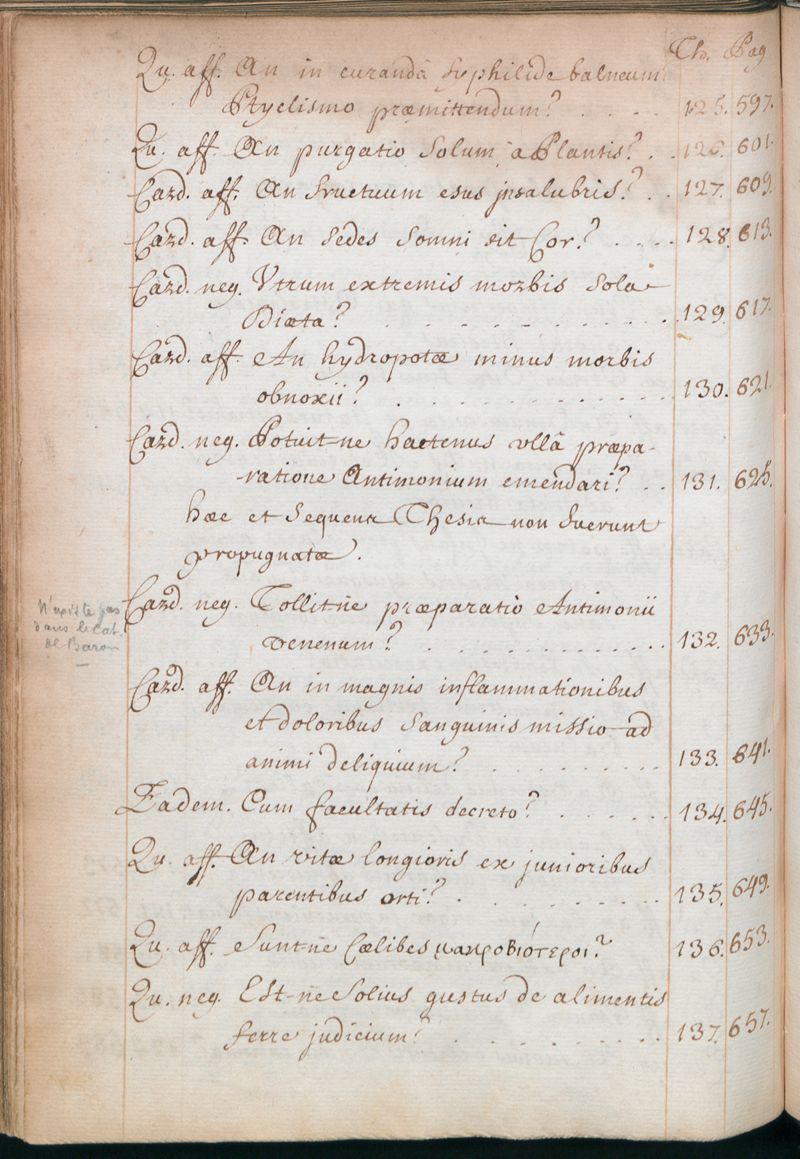 Th. Pag
Qu. aff. An in curandâ syphilide balneum
Ptyelismo præmittendum? . . . . . 125. 597.
Qu. aff. An purgatio solum a Plantis? . . 126. 601.
Card. aff. An fructuum esus insalubris? . . 127. 609.
Card. aff. An sedes somni sit Cor? . . . . 128. 613.
Card. neg. Utrum extremis morbis sola
Diæta? . . . . . . . . . . . 129. 617.
Card. aff. An hydropotæ minus morbis
obnoxii? . . . . . . . . . . 130. 621.
Card. neg. Potuit-ne hactenus ullâ præpa-
ratione Antimonium emendari? . . 131. 625.
hæc et sequens Thesis non fuerunt
propugnatæ.
Card. neg. Tollit-ne præparatio Antimonii
venenum? . . . . . . . . . . 132. 633.
N'existe pas
dans le Cat.
de Baron
Card. aff. An in magnis inflammationibus
et doloribus sanguinis missio ad
animi deliquium? . . . . . . . 133. 641.
Eadem. Cum facultatis decreto? . . . . . . 134. 645.
Qu. aff. An vitæ longioris ex junioribus
parentibus orti? . . . . . . . . . 135. 649.
Qu. aff. Sunt-ne Cælibes μακροβιότεροι? 136. 653.
Qu. neg. Est-ne solius gustus de alimentis
ferre judicium? . . . . . . . . . 137. 657.